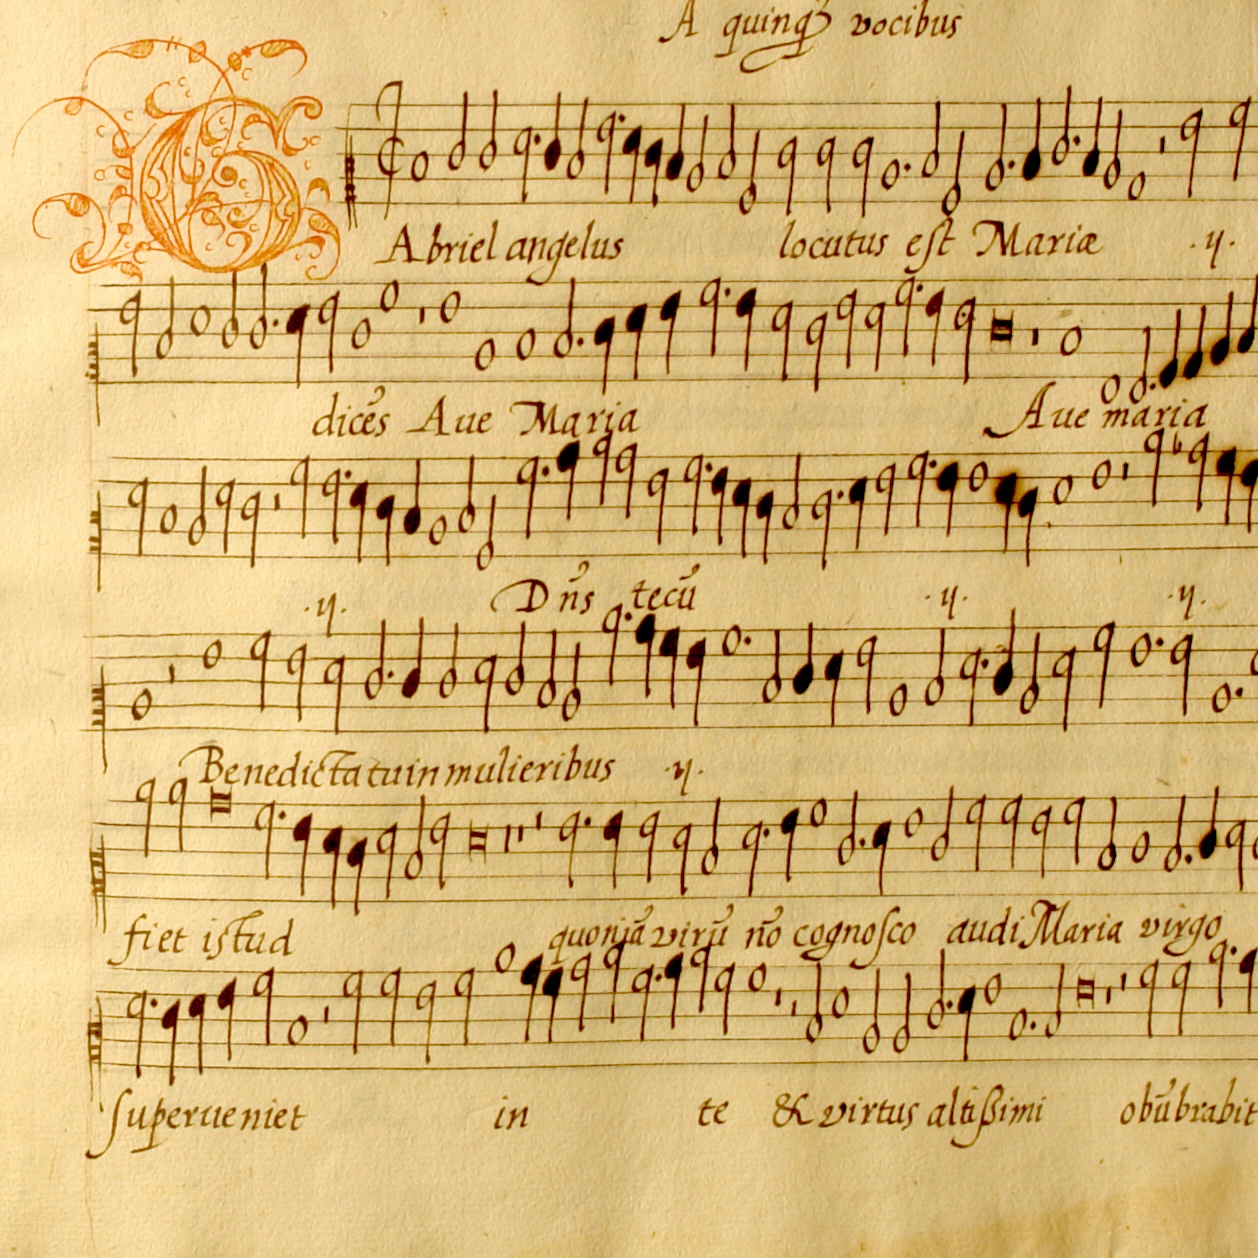 A quinq̃ vocibus
GAbriel angelus locutus est Mariæ .ij.
dicẽs Aue Maria Aue maria
.ij. Dñs tecũ .ij. .ij.
Benedicta tu in mulieribus .ij.
fiet istud quoniã virũ nõ cognosco audi Maria virgo
superueniet in te & virtus altißimi obũbrabit